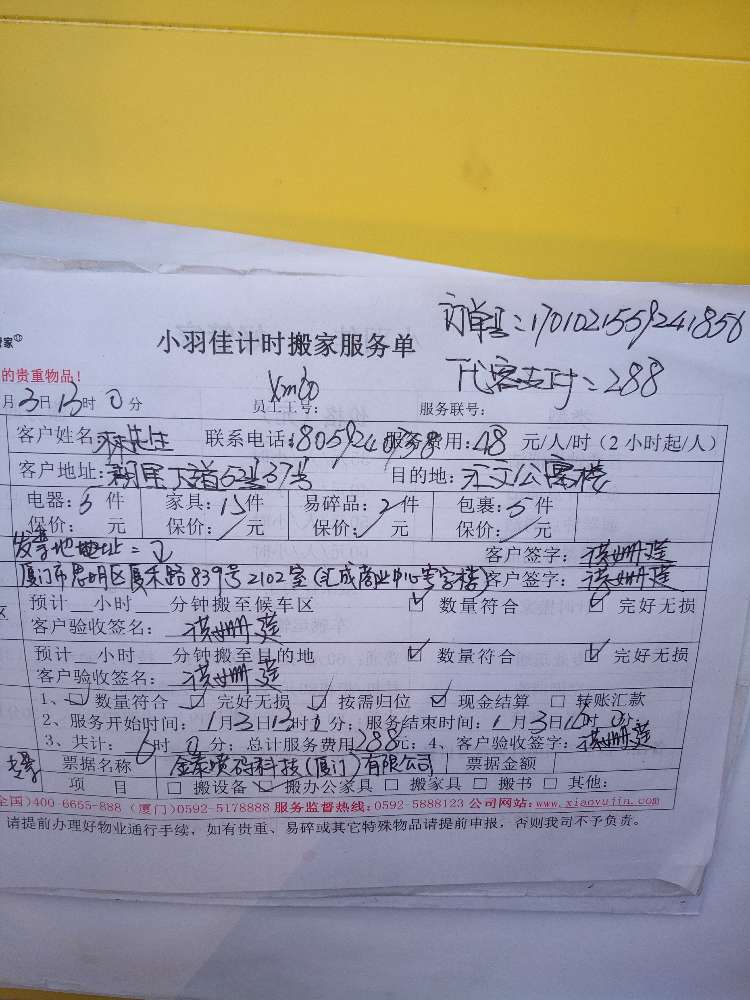 订单号:1701021559241856
管家
小羽佳计时搬家服务单
代客支付:288
的贵重物品!
月3日13时0分 员工工号: 服务联号:
客户姓名: 林先生 联系电话:18059240938 服务费用:48元/人/时(2小时起/人)
客户地址: 62 37号 目的地: 公寓楼
电器:5件 家具:15件 易碎品:2件 包裹:5件
保价: 元 保价:/元 保价:/元 保价:/元
发票地地址: 客户签字:
厦门市思明区厦禾路839号2102室(汇成商业中心写字楼) 客户签字:
区 预计__小时__分钟搬至候车区 ☑数量符合 ☑完好无损
客户验收签名:
预计__小时__分钟搬至目的地 ☑数量符合 ☑完好无损
客户验收签名:
1、☑数量符合 ☑完好无损 ☑按需归位 ☑现金结算 □转账汇款
2、服务开始时间:1月3日13时0分;服务结束时间:1月3日16时0分;
3、共计:6时0分;总计服务费用288元;4、客户验收签字:
票据名称 科技(厦门)有限公司 票据金额
项目 □搬设备 ☑搬办公家具 □搬家具 □搬书 □其他:
全国)400-6655-888 (厦门)0592-5178888 服务监督热线:0592-5888123 公司网站:www.xiaoyujia.com
请提前办理好物业通行手续,如有贵重、易碎或其它特殊物品请提前申报,否则我司不予负责。